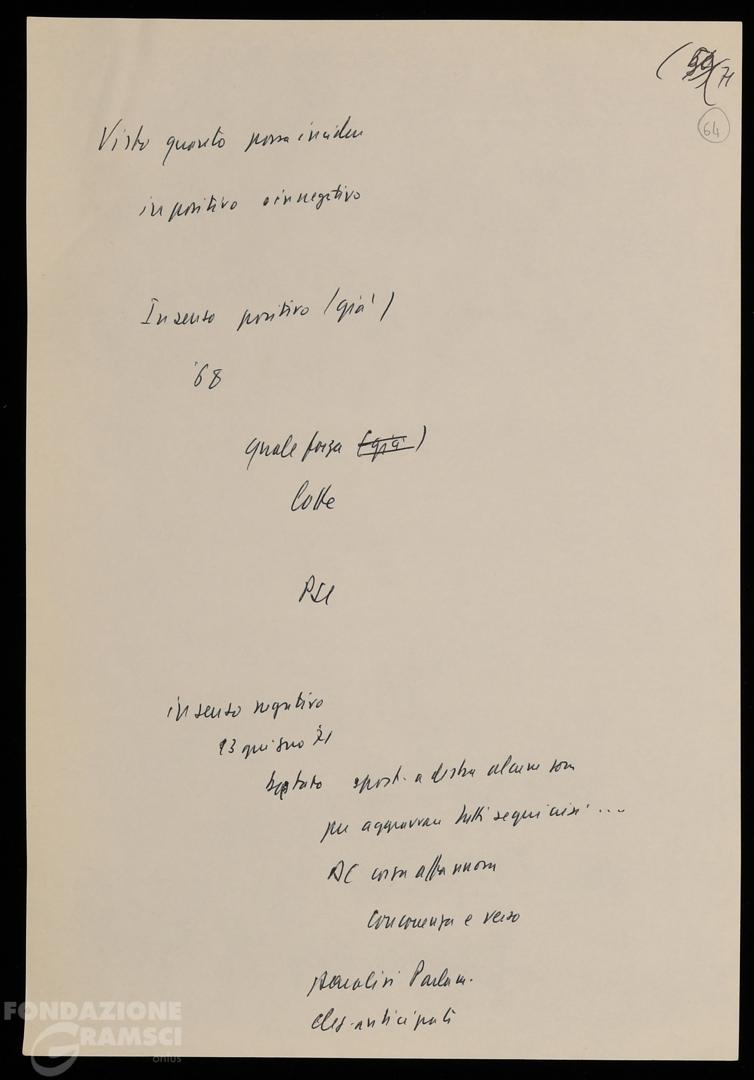 64
Visto quanto possa incidere
in positivo e in negativo
In senso positivo (già)
'68
quale forza (già)
lotte
PSI
in senso negativo
13 giugno '71
spost. a destra alcune
per aggravare tutti segni crisi ...
DC corsa affannosa
concorrenza e verso
Paralisi Parlam.
elez. anticipati
FONDAZIONE
GRAMSCI
onlus